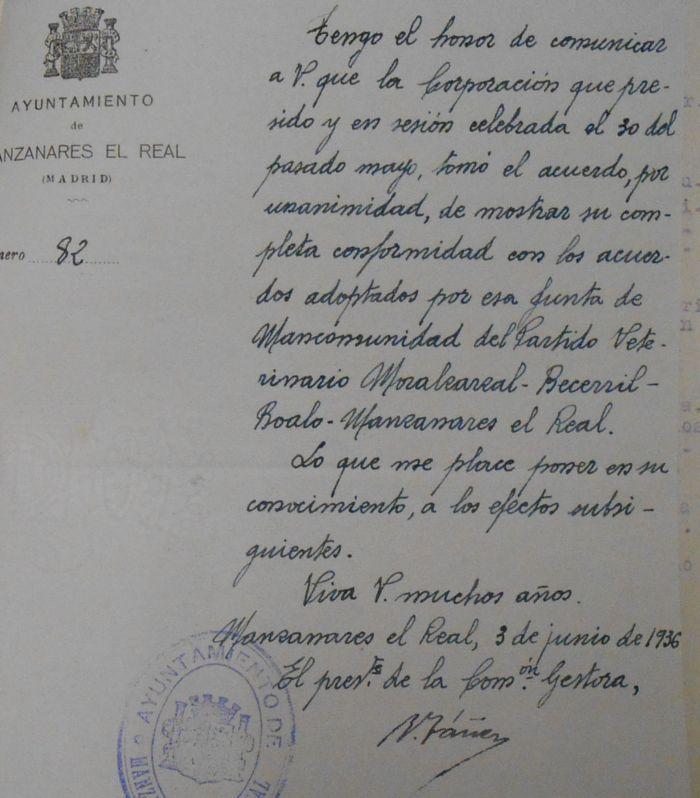 AYUNTAMIENTO
de
ANZANARES EL REAL
(MADRID)
nero 82
Tengo el honor de comunicar
a V. que la Corporación que pre-
sido y en sesión celebrada el 30 del
pasado mayo, tomó el acuerdo, por
unanimidad, de mostrar su com-
pleta conformidad con los acuer-
dos adoptados por esa Junta de
Mancomunidad del Partido Vete-
rinario Moralzarzal-Becerril-
Boalo-Manzanares el Real.
Lo que me place poner en su
conocimiento, a los efectos subsi-
guientes.
Viva V. muchos años.
Manzanares el Real, 3 de junio de 1936
El pres.te de la Com.ón Gestora,
AYUNTAMIENTO DE
MANZ
AL